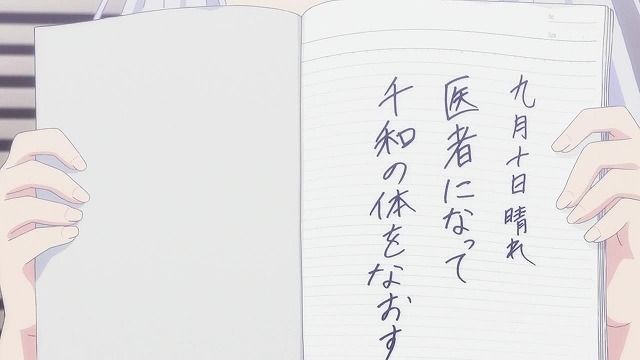 九月十日晴れ
医者になって
千和の体をなおす